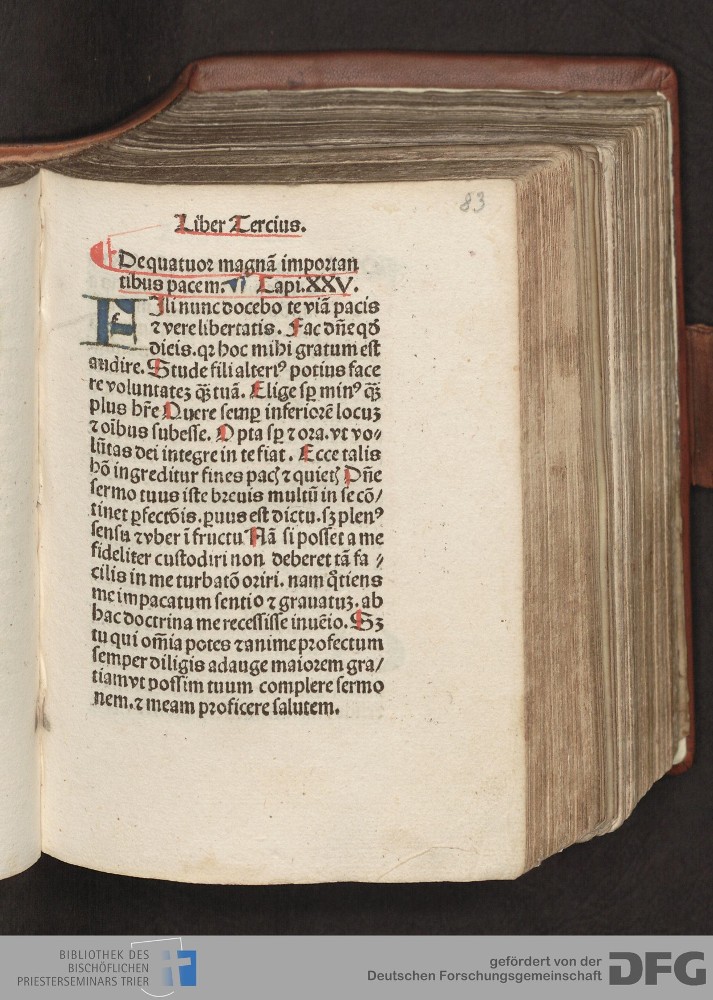 83
Liber Tercius.
De quatuor magnã importan
tibus pacem. Capi. XXV.
Fili nunc docebo te viã pacis
⁊ vere libertatis. Fac dñe qđ
dicis. qꝛ hoc mihi gratum est
audire. Stude fili alteriꝰ potius face
re voluntateꝫ qꝫ̃ tuã. Elige sꝑ minꝰ qꝫ̃
plus hr̃e Quere semꝑ inferiorẽ locuꝫ
⁊ oĩbus subesse. Opta sꝑ ⁊ ora. vt vo⸗
lũtas dei integre in te fiat. Ecce talis
hõ ingreditur fines pacꝭ ⁊ quietꝭ Dñe
sermo tuus iste breuis multũ in se cõ/
tinet ꝑfectõis. ꝑuus est dictu. sꝫ plenꝰ
sensu ⁊ vber ĩ fructu Nã si posset a me
fideliter custodiri non deberet tã fa⸗
cilis in me turbatõ oriri. nam q̃tiens
me impacatum sentio ⁊ grauatuꝫ. ab
hac doctrina me recessisse inuẽio. Sꝫ
tu qui om̃ia potes ⁊ anime profectum
semper diligis adauge maiorem gra/
tiam vt possim tuum complere sermo
nem. ⁊ meam proficere salutem.
BIBLIOTHEK DES
BISCHÖFLICHEN
PRIESTERSEMINARS TRIER
gefördert von der
Deutschen Forschungsgemeinschaft
DFG